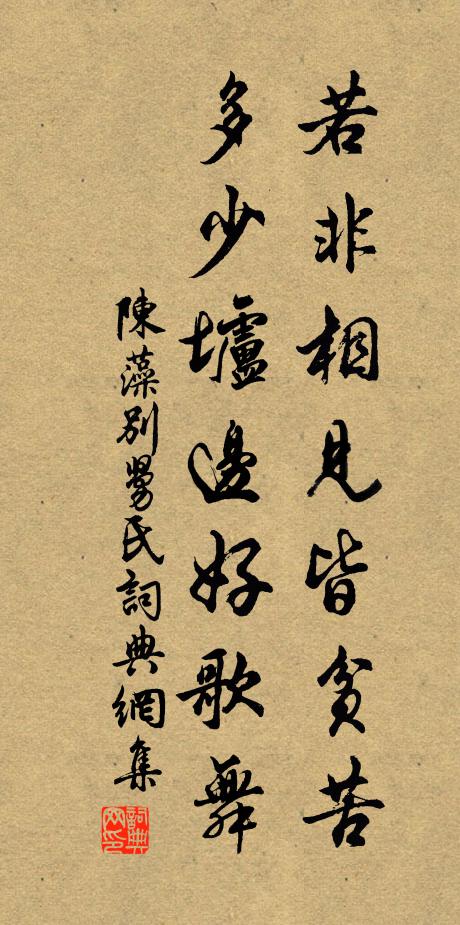 若非相見皆貧苦
多少壚邊好歌舞
陳藻別舅氏詞典網集
詞典网印